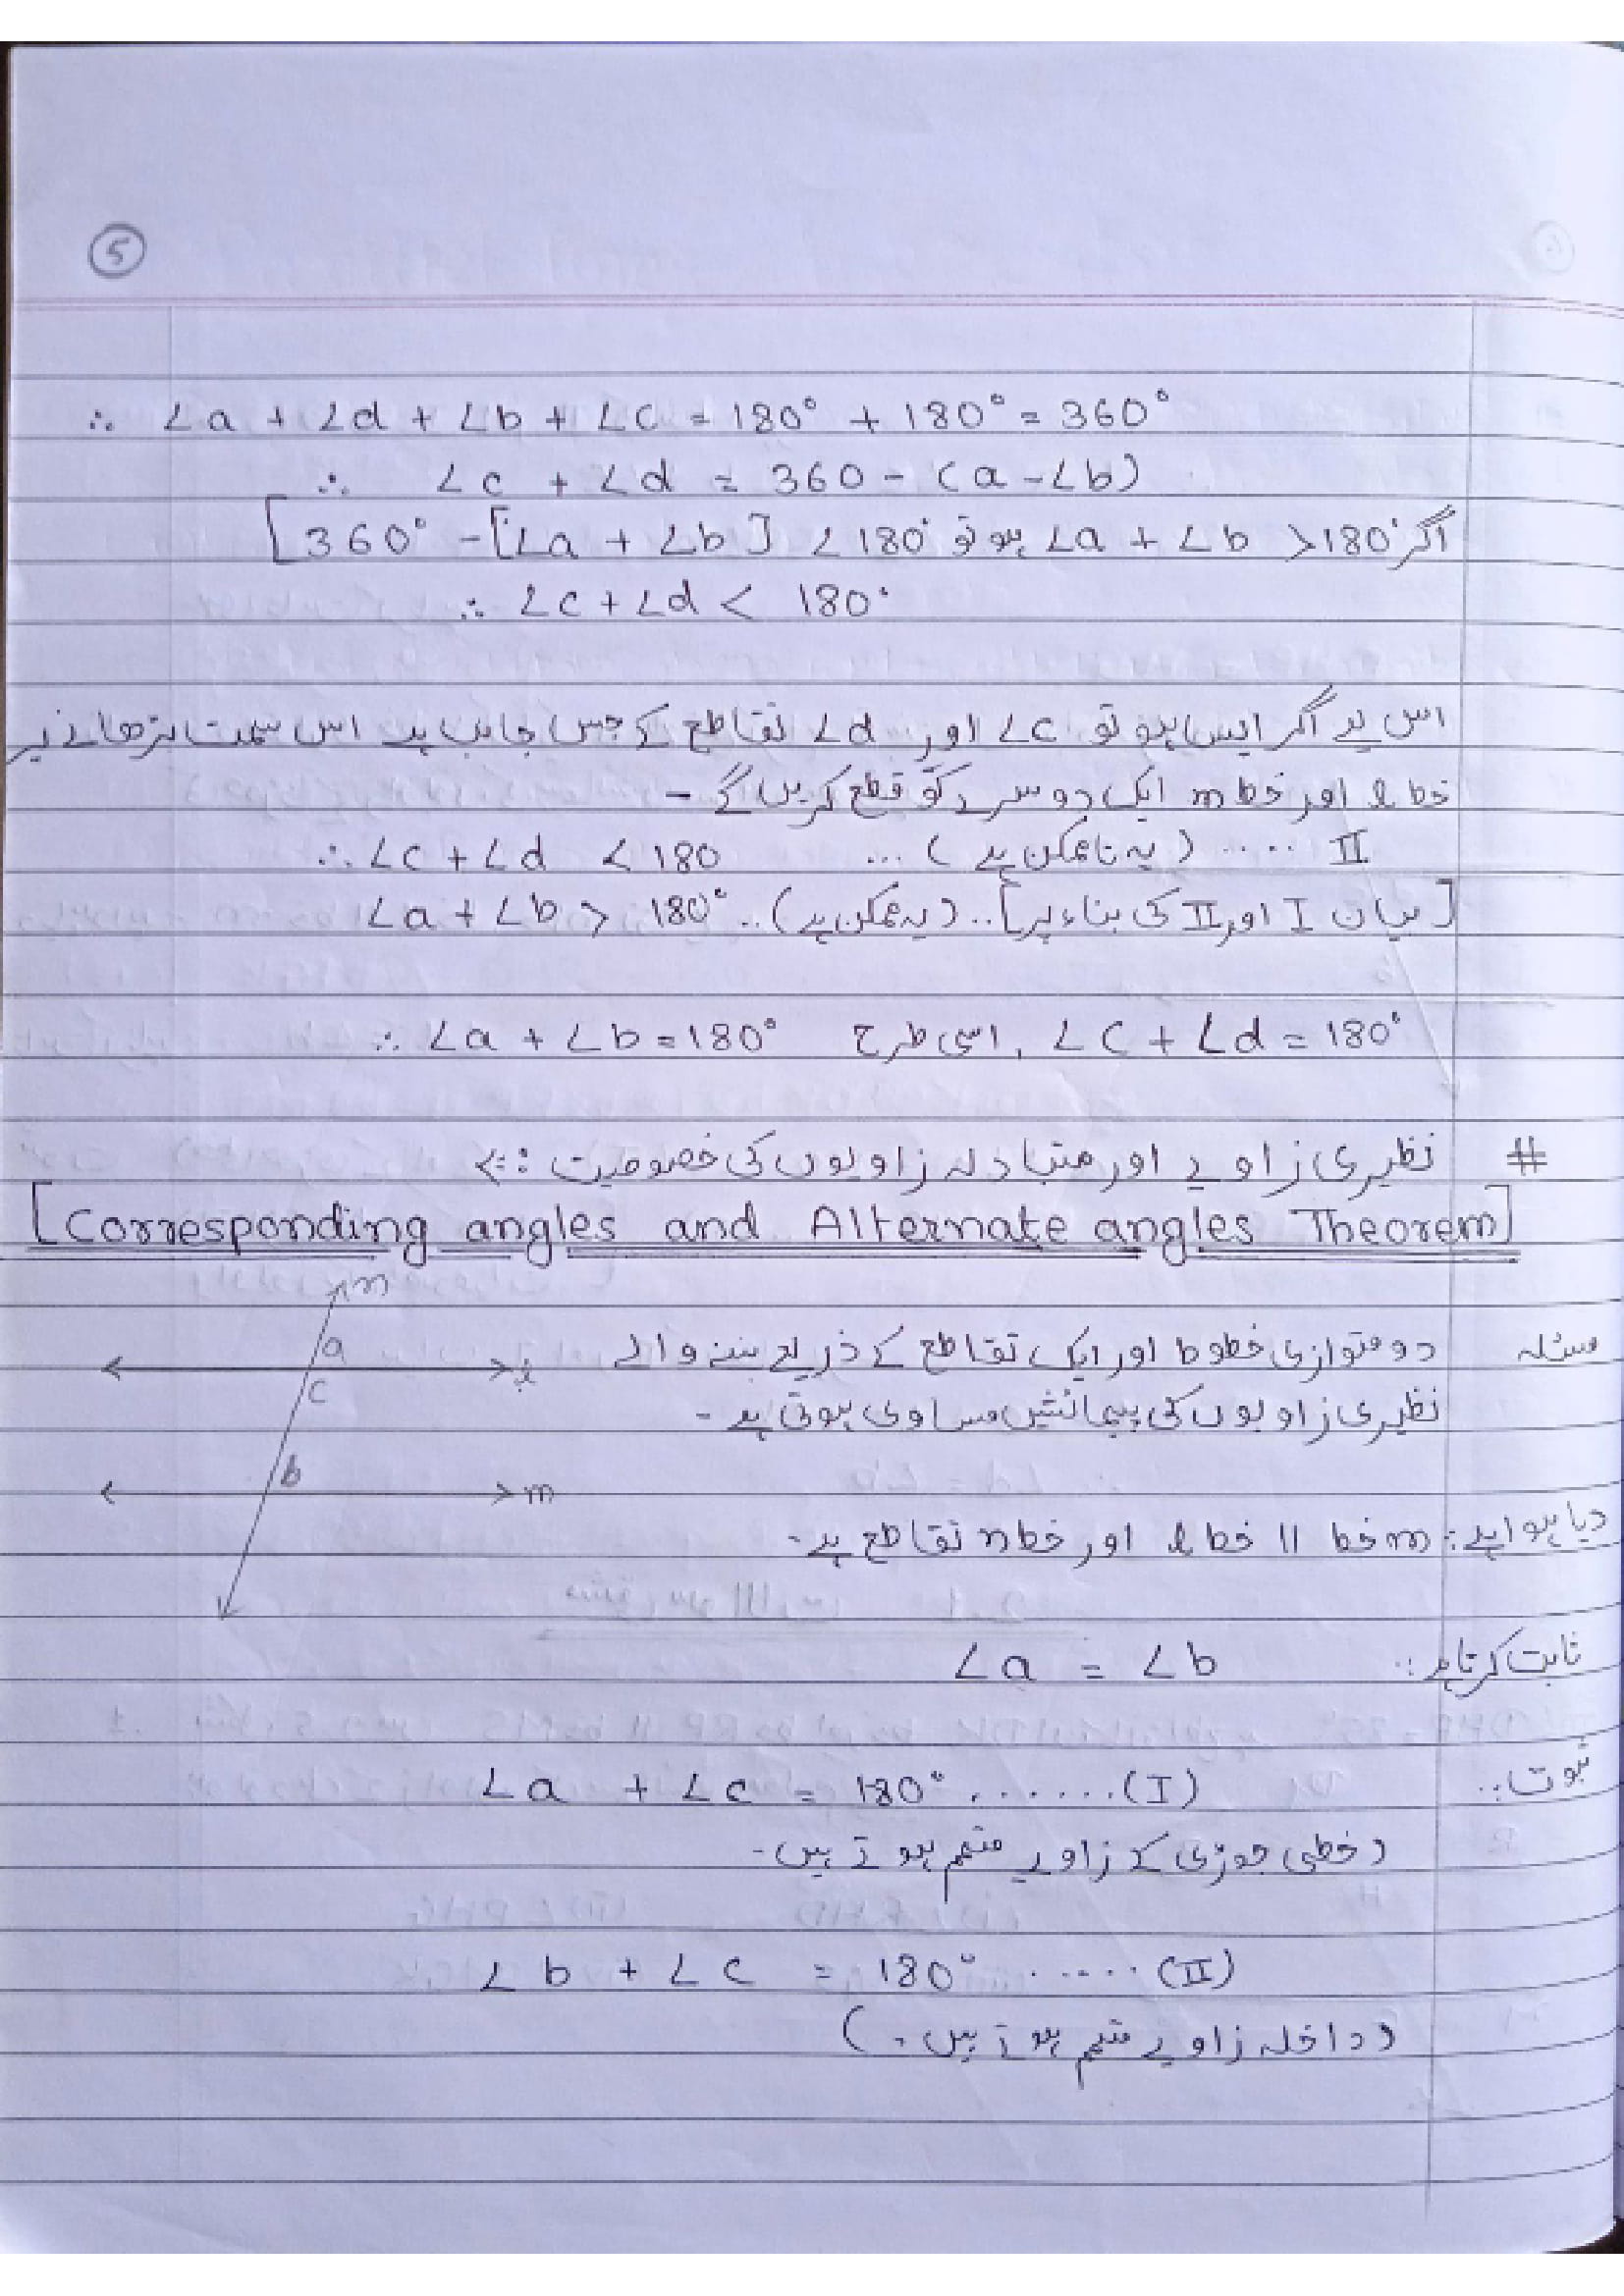 5
∴ ∠a + ∠d + ∠b + ∠c = 180° + 180° = 360°
∴ ∠c + ∠d = 360 - (a - ∠b)
اگر ∠a + ∠b > 180° ہو تو [360° - [∠a + ∠b] < 180°
∴ ∠c + ∠d < 180°
اس پر اگر ایسا ہو تو ∠c اور ∠d تقاطع کے جس جانب ہے اس سمت بڑھانے پر
خط l اور خط m ایک دوسرے کو قطع کریں گے -
∴ ∠c + ∠d < 180 ... (یہ ناممکن ہے) .... II
∠a + ∠b > 180° .. (یہ ممکن ہے) .. [بیان I اور II کی بناء پر]
∴ ∠a + ∠b = 180° اسی طرح , ∠c + ∠d = 180°
# نظیری زاویے اور متبادلہ زاویوں کی خصوصیت :-
[Corresponding angles and Alternate angles Theorem]
n
a
l
c
b
m
مسئلہ دو متوازی خطوط اور ایک تقاطع کے ذریعے بننے والے
نظیری زاویوں کی پیمائشیں مساوی ہوتی ہے -
دیا ہوا ہے : خط m || خط l اور خط n تقاطع ہے -
ثابت کرنا ہے : ∠a = ∠b
ثبوت : ∠a + ∠c = 180° ....... (I)
(خطی جوڑی کے زاویے متمم ہوتے ہیں -
∠b + ∠c = 180° ..... (II)
(داخلہ زاویے متمم ہوتے ہیں -)